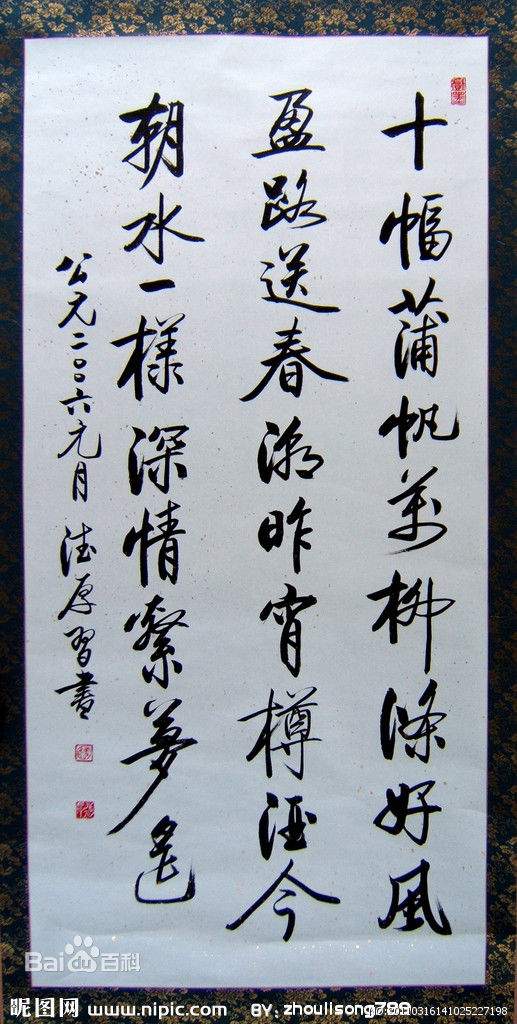 十幅蒲帆萬柳條好風
盈路送春潮昨宵樽酒今
朝水一樣深情縈夢遙
公元二〇〇六元月 德原習書
Bai百科
昵图网 www.nipic.com BY: zhoulisong789 NO:20100316141025227198